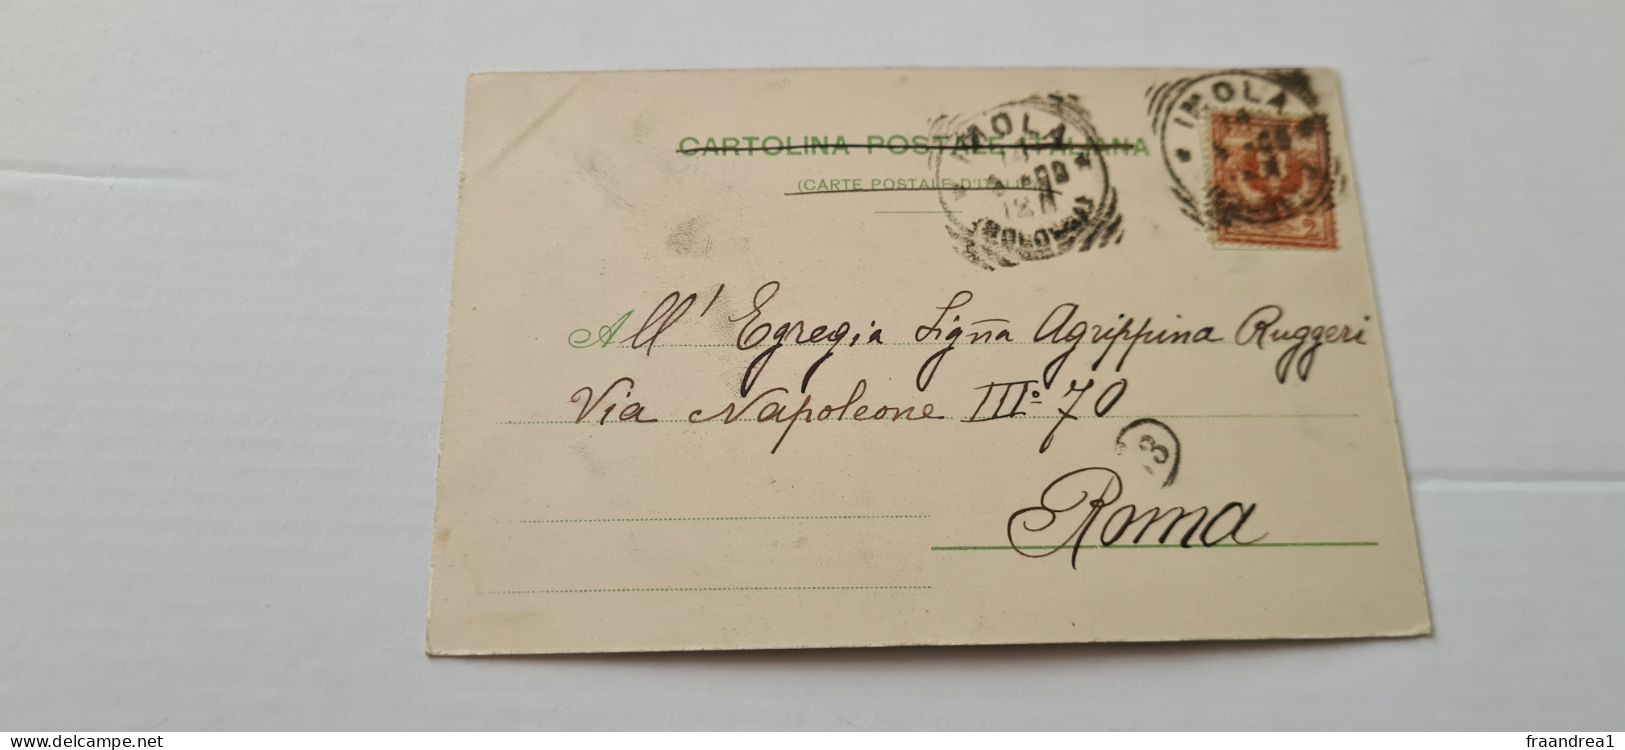 CARTOLINA POSTALE ITALIANA
(CARTE POSTALE D'ITALIE)
IMOLA
(BOLOGNA)
IMOLA
2
All' Egregia Sigña Agrippina Ruggeri
Via Napoleone IIIº 70
Roma
delcampe.net
fraandrea1